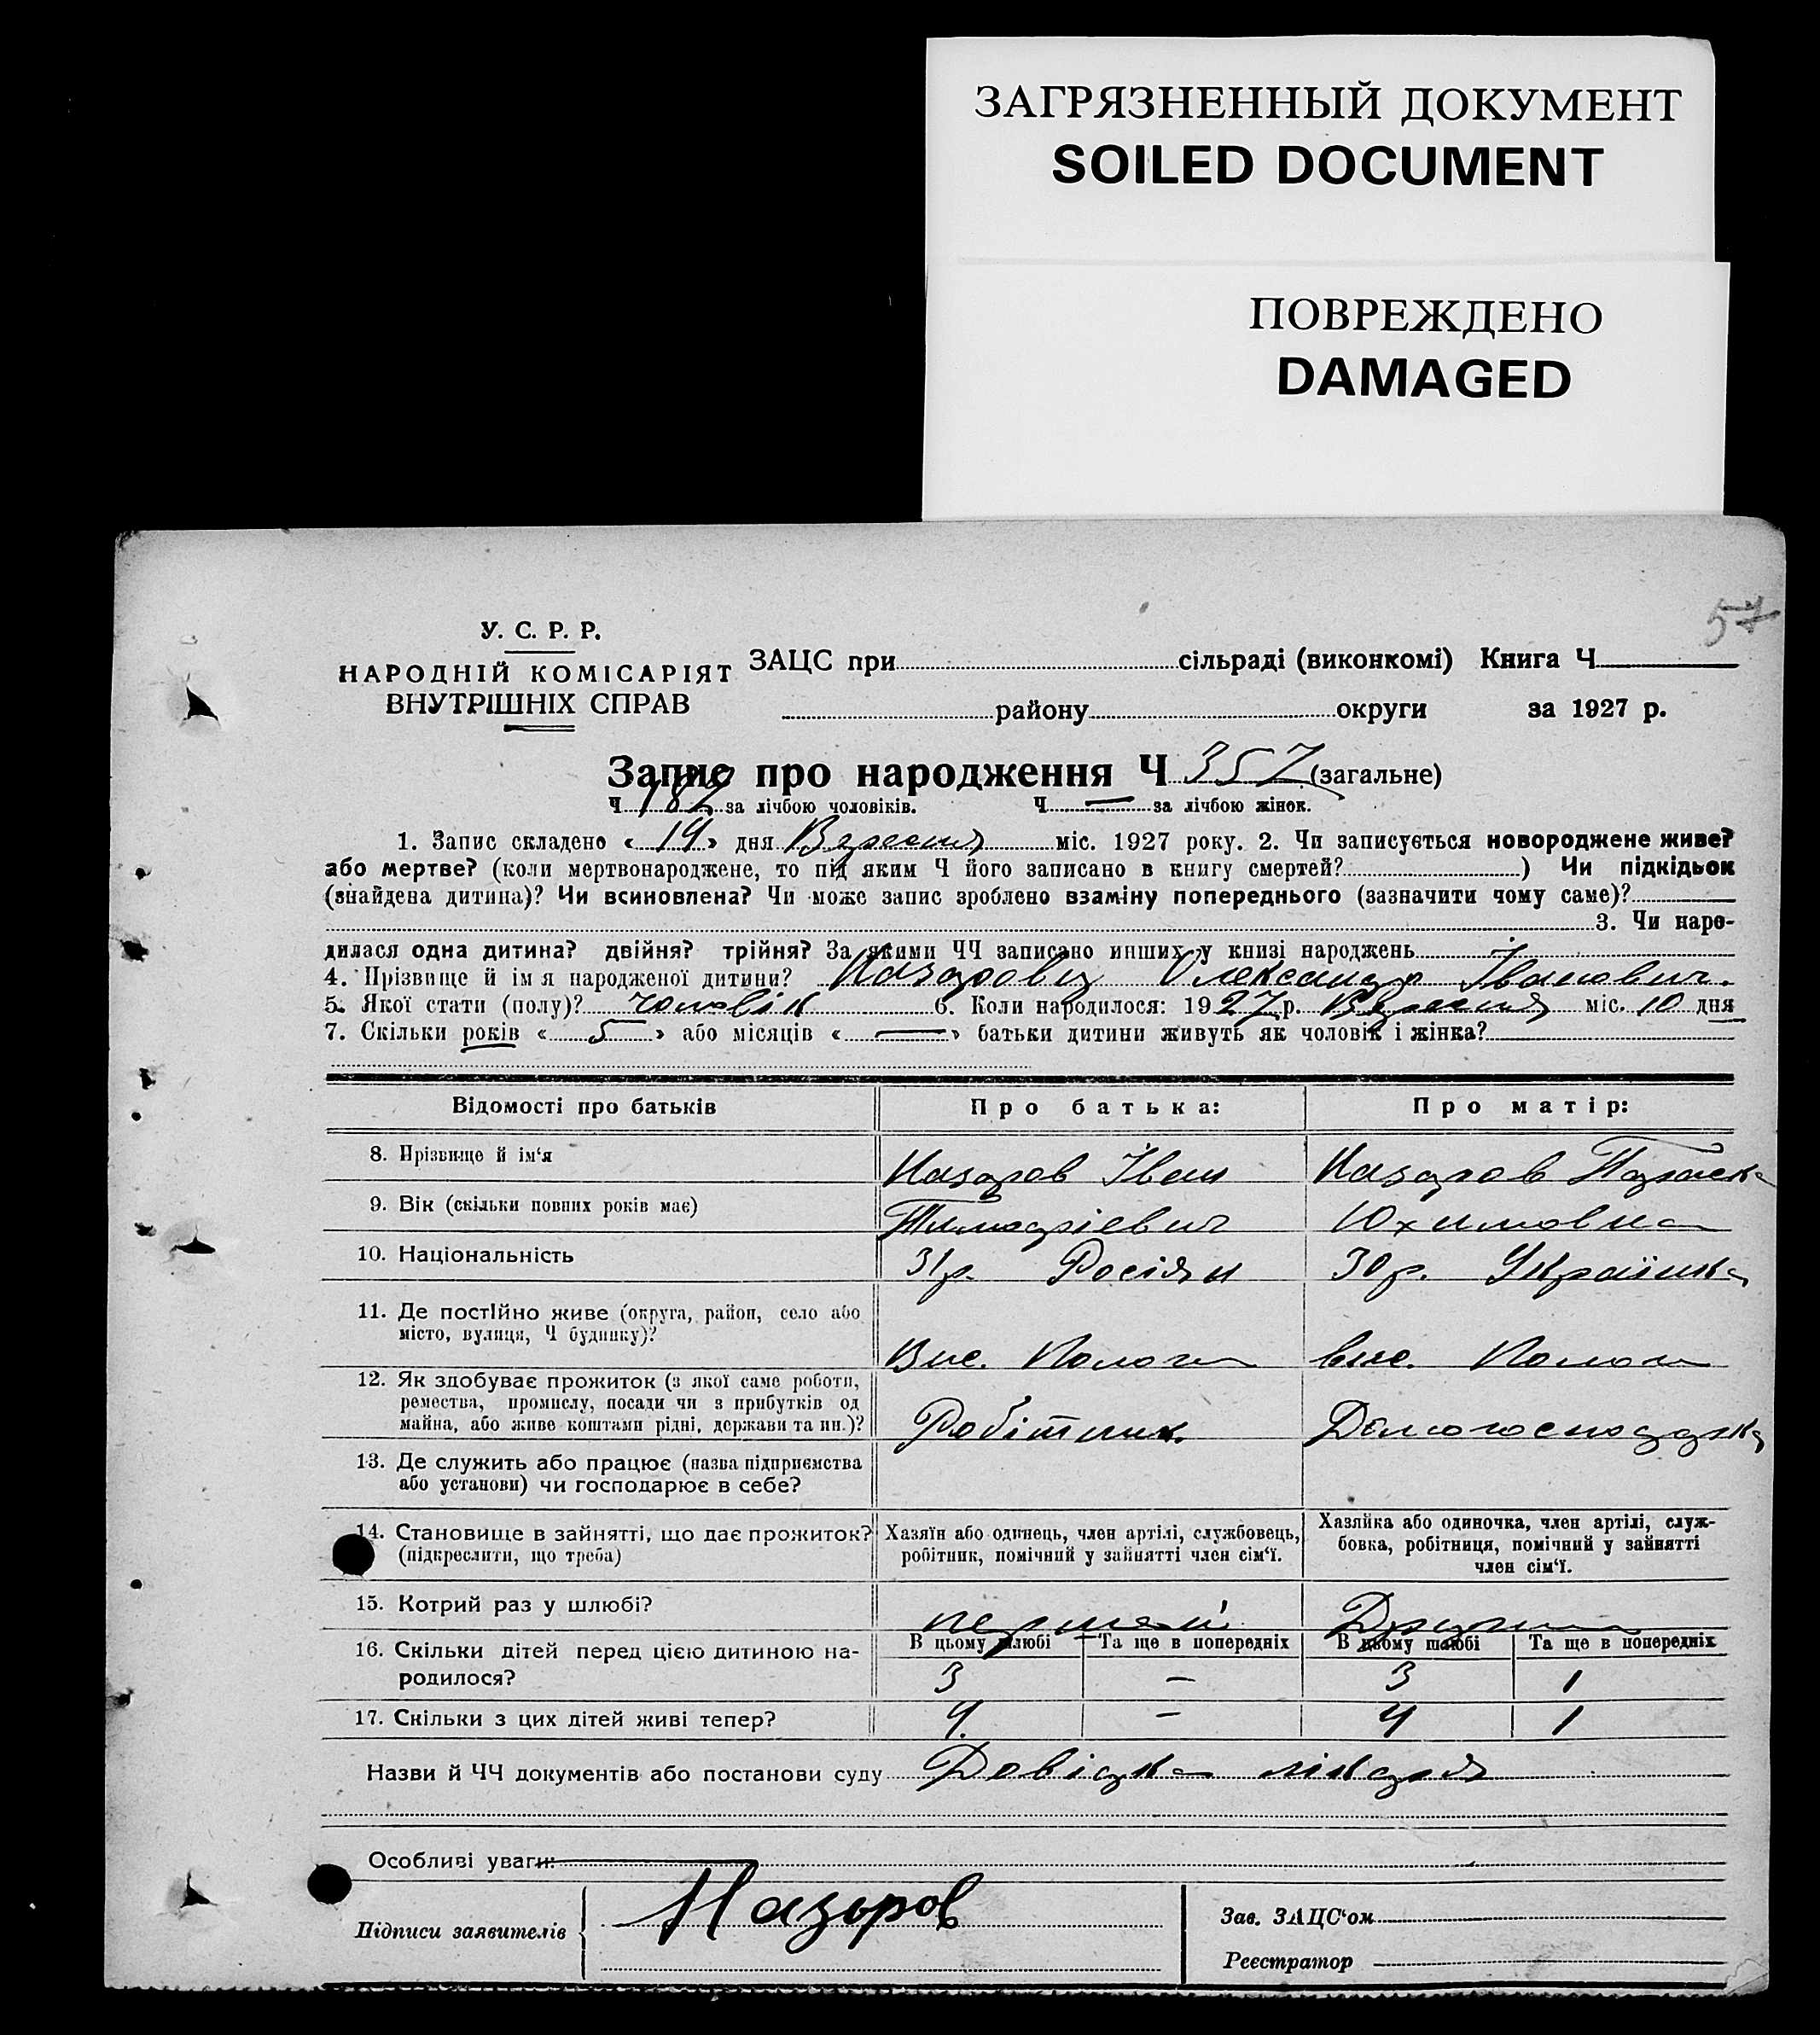 ЗАГРЯЗНЕННЫЙ ДОКУМЕНТ
SOILED DOCUMENT
ПОВРЕЖДЕНО
DAMAGED
57
У. С. Р. Р.
НАРОДНІЙ КОМІСАРІЯТ
ВНУТРІШНІХ СПРАВ
ЗАЦС при сільраді (виконкомі) Книга Ч
району округи за 1927 р.
Запис про народження Ч 357 (загальне)
Ч 182 за лічбою чоловіків. Ч — за лічбою жінок.
1. Запис складено «14» дня Вересня міс. 1927 року. 2. Чи записується новороджене живе?
або мертве? (коли мертвонароджене, то під яким Ч його записано в книгу смертей? ) Чи підкідьок
(знайдена дитина)? Чи всиновлена? Чи може запис зроблено взаміну попереднього (зазначити чому саме)?
3. Чи наро-
дилася одна дитина? двійня? трійня? За якими ЧЧ записано инших у книзі народжень
4. Прізвище й імя народженої дитини? Олександр Іванович.
5. Якої стати (полу)? чоловік 6. Коли народилося: 1927 р. Вересня міс. 10 дня
7. Скільки років « 5 » або місяців « — » батьки дитини живуть як чоловік і жінка?
Відомості про батьків
Про батька:
Про матір:
8. Прізвище й ім'я
Назаров Іван
Назаров Параска
9. Вік (скільки повних років має)
Юхимовна
10. Національність
31р. Росіян
30р. Українка
11. Де постійно живе (округа, район, село або
місто, вулиця, Ч будинку)?
Вис. Пологи
вис. Пологи
12. Як здобуває прожиток (з якої саме роботи,
ремества, промислу, посади чи з прибутків од
майна, або живе коштами рідні, держави та ин.)?
Робітник.
Домогосподарка
13. Де служить або працює (назва підприємства
або установи) чи господарює в себе?
14. Становище в зайнятті, що дає прожиток?
(підкреслити, що треба)
Хазяїн або одинець, член артілі, службовець,
робітник, помічний у зайнятті член сім'ї.
Хазяйка або одиночка, член артілі, служ-
бовка, робітниця, помічний у зайнятті
член сім'ї.
15. Котрий раз у шлюбі?
первий
Другий
16. Скільки дітей перед цією дитиною на-
родилося?
В цьому шлюбі Та ще в попередніх
В цьому шлюбі Та ще в попередніх
3 — 3 1
17. Скільки з цих дітей живі тепер?
4. — 4 1
Назви й ЧЧ документів або постанови суду Довідка лікаря
Особливі уваги:
Підписи заявителів
Назаров
Зав. ЗАЦС'ом
Реєстратор